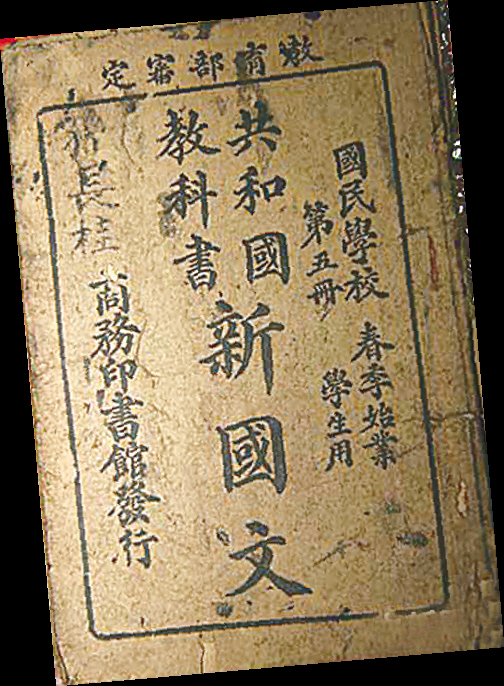 教育部審定
國民學校
春季始業
第五冊
學生用
共和國
教科書
新國文
商務印書館發行
長桂